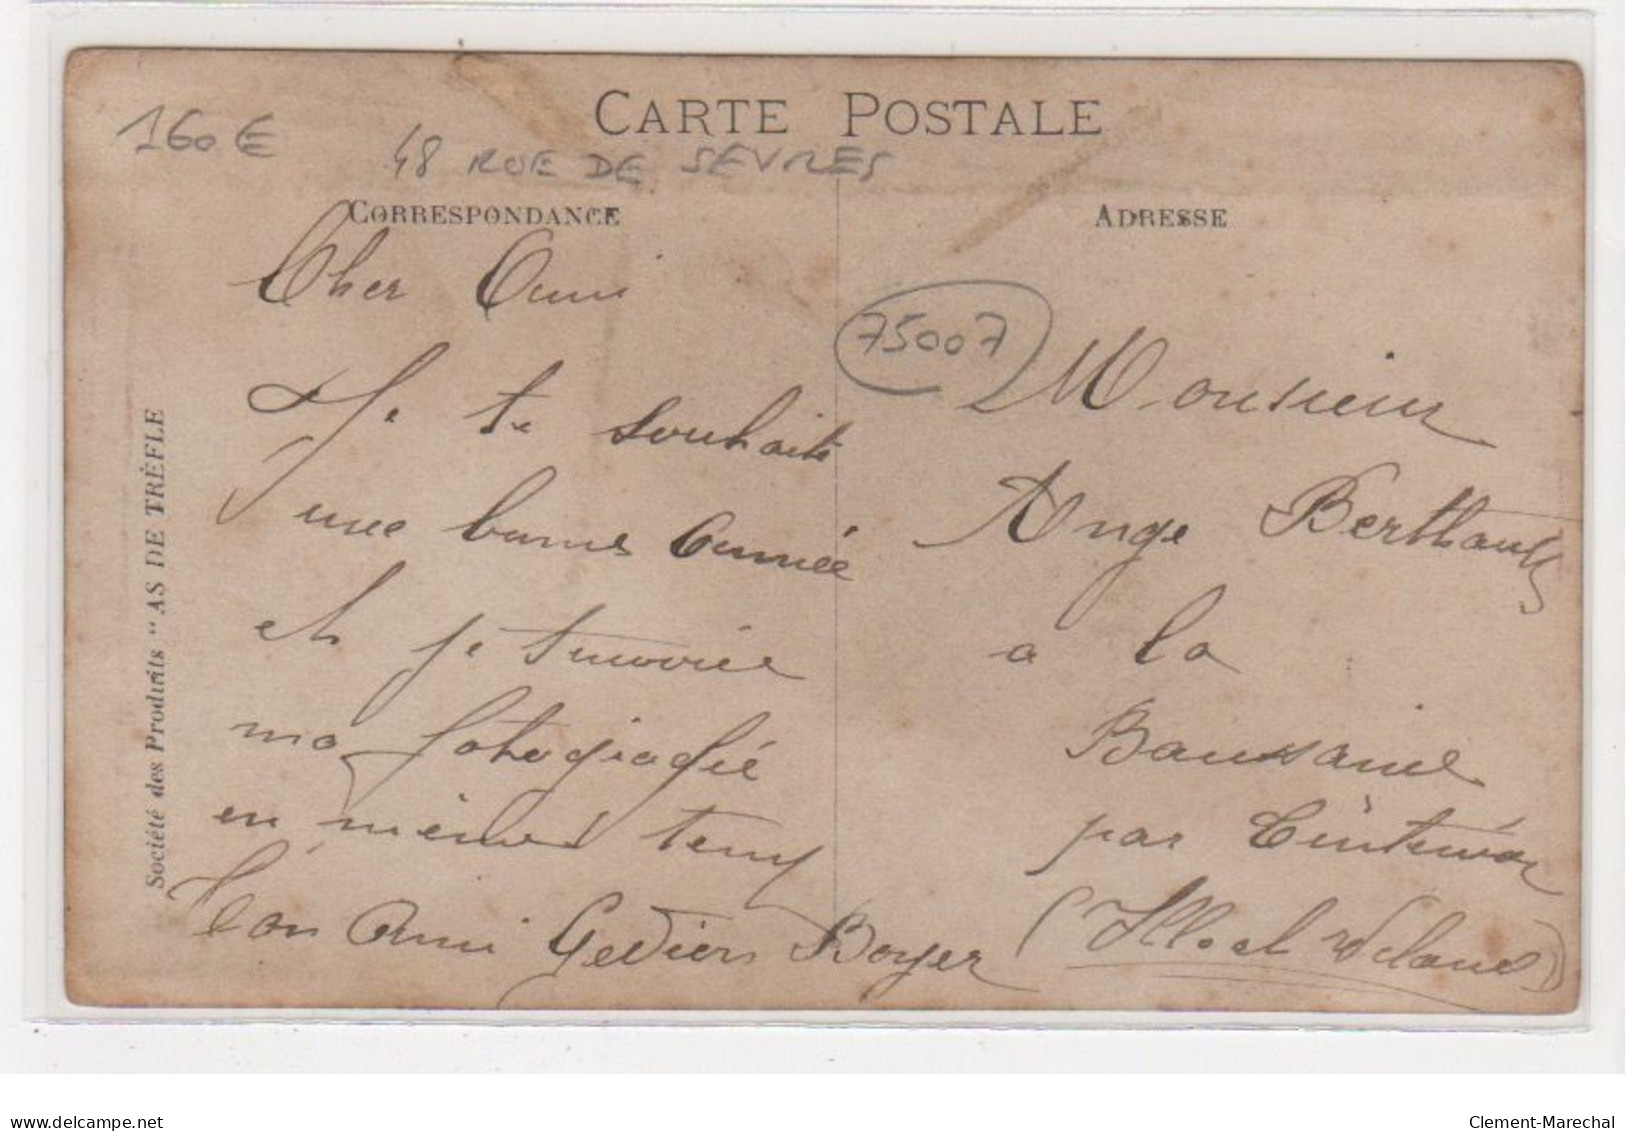 CARTE POSTALE
160 €
48 RUE DE SEVRES
CORRESPONDANCE
ADRESSE
Cher Ami
75007
Je te souhaite
une bonne année
et je t'envoie
ma fotografie
en même temp
Ton Ami Boyer
Monsieur
Ange Berthault
a la
Baussaine
par Tinténiac
(Ille et Vilaine)
Société des Produits "AS DE TRÈFLE
www.delcampe.net
Clement-Marechal